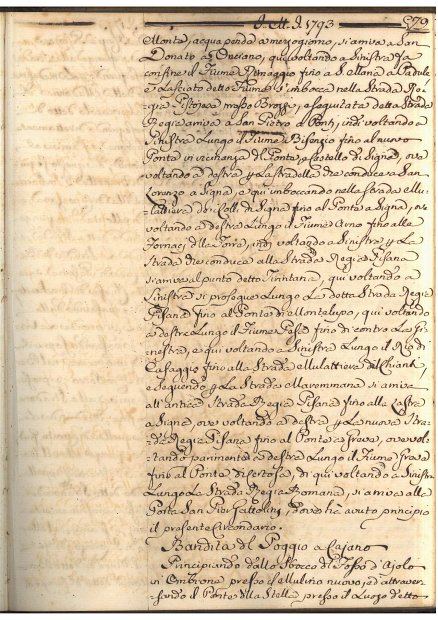 A. Ott. d. 1793 279
Monte, acqua pende a mezzogiorno, si arriva a San
Donato a, qui voltando a Sinistra fa
confine il Fiume Rimaggio fino a S. Mona a Padule
e Lasciato detto Fiume s'imbocca nella Strada Re-
gia Pistojese presso Brozzi, e seguitata detta Strada
Regia arriva a San Pietro a Ponti, indi voltando a
Sinistra Lungo il Fiume Bisenzio fino al nuovo
Ponte in vicinanza del Ponte, e Castello di Signa, ove
voltando a destra p. La Strada che conduce a San
Lorenzo a Signa, e qui imboccando nella strada mu-
lattiera de' Colli di Signa fino al Ponte a Signa, ove
voltando a destra Lungo il Fiume Arno fino alle
Fornaci della Torre, indi voltando a Sinistra p. La
Strada che conduce alla Strada Regia Pisana
si arriva al punto detto Tinntana, qui voltando a
Sinistra si prosegue Lungo La detta Strada Regia
Pisana fino al Ponte di Montelupo, qui voltando
a destra Lungo il Fiume Pesa fino di contro La Gi-
nestra, e qui voltando a Sinistra Lungo il Rio di
Cafaggio fino alla Strada Mulattiera del Chianti,
e seguendo p. La Strada Maremmana si arriva
all'antica Strada Regia Pisana fino alla Lastra
a Signa, ove voltando a destra p. La nuova Stra-
da Regia Pisana fino al Ponte a Greve, ove vol-
tando parimente a destra Lungo il Fiume Greve
fino al Ponte di Certosa, di qui voltando a Sinistra
Lungo La Strada Regia Romana, si arriva alla
Porta San Pier Gattolini, dove ha avuto principio
il presente Circondario.
Bandita del Poggio a Cajano
Principiando dallo Sbocco del Fosso d'Ajolo
in Ombrone presso il Mulino nuovo, ed attraver-
sando il Ponte alla Stella presso il Luogo detto